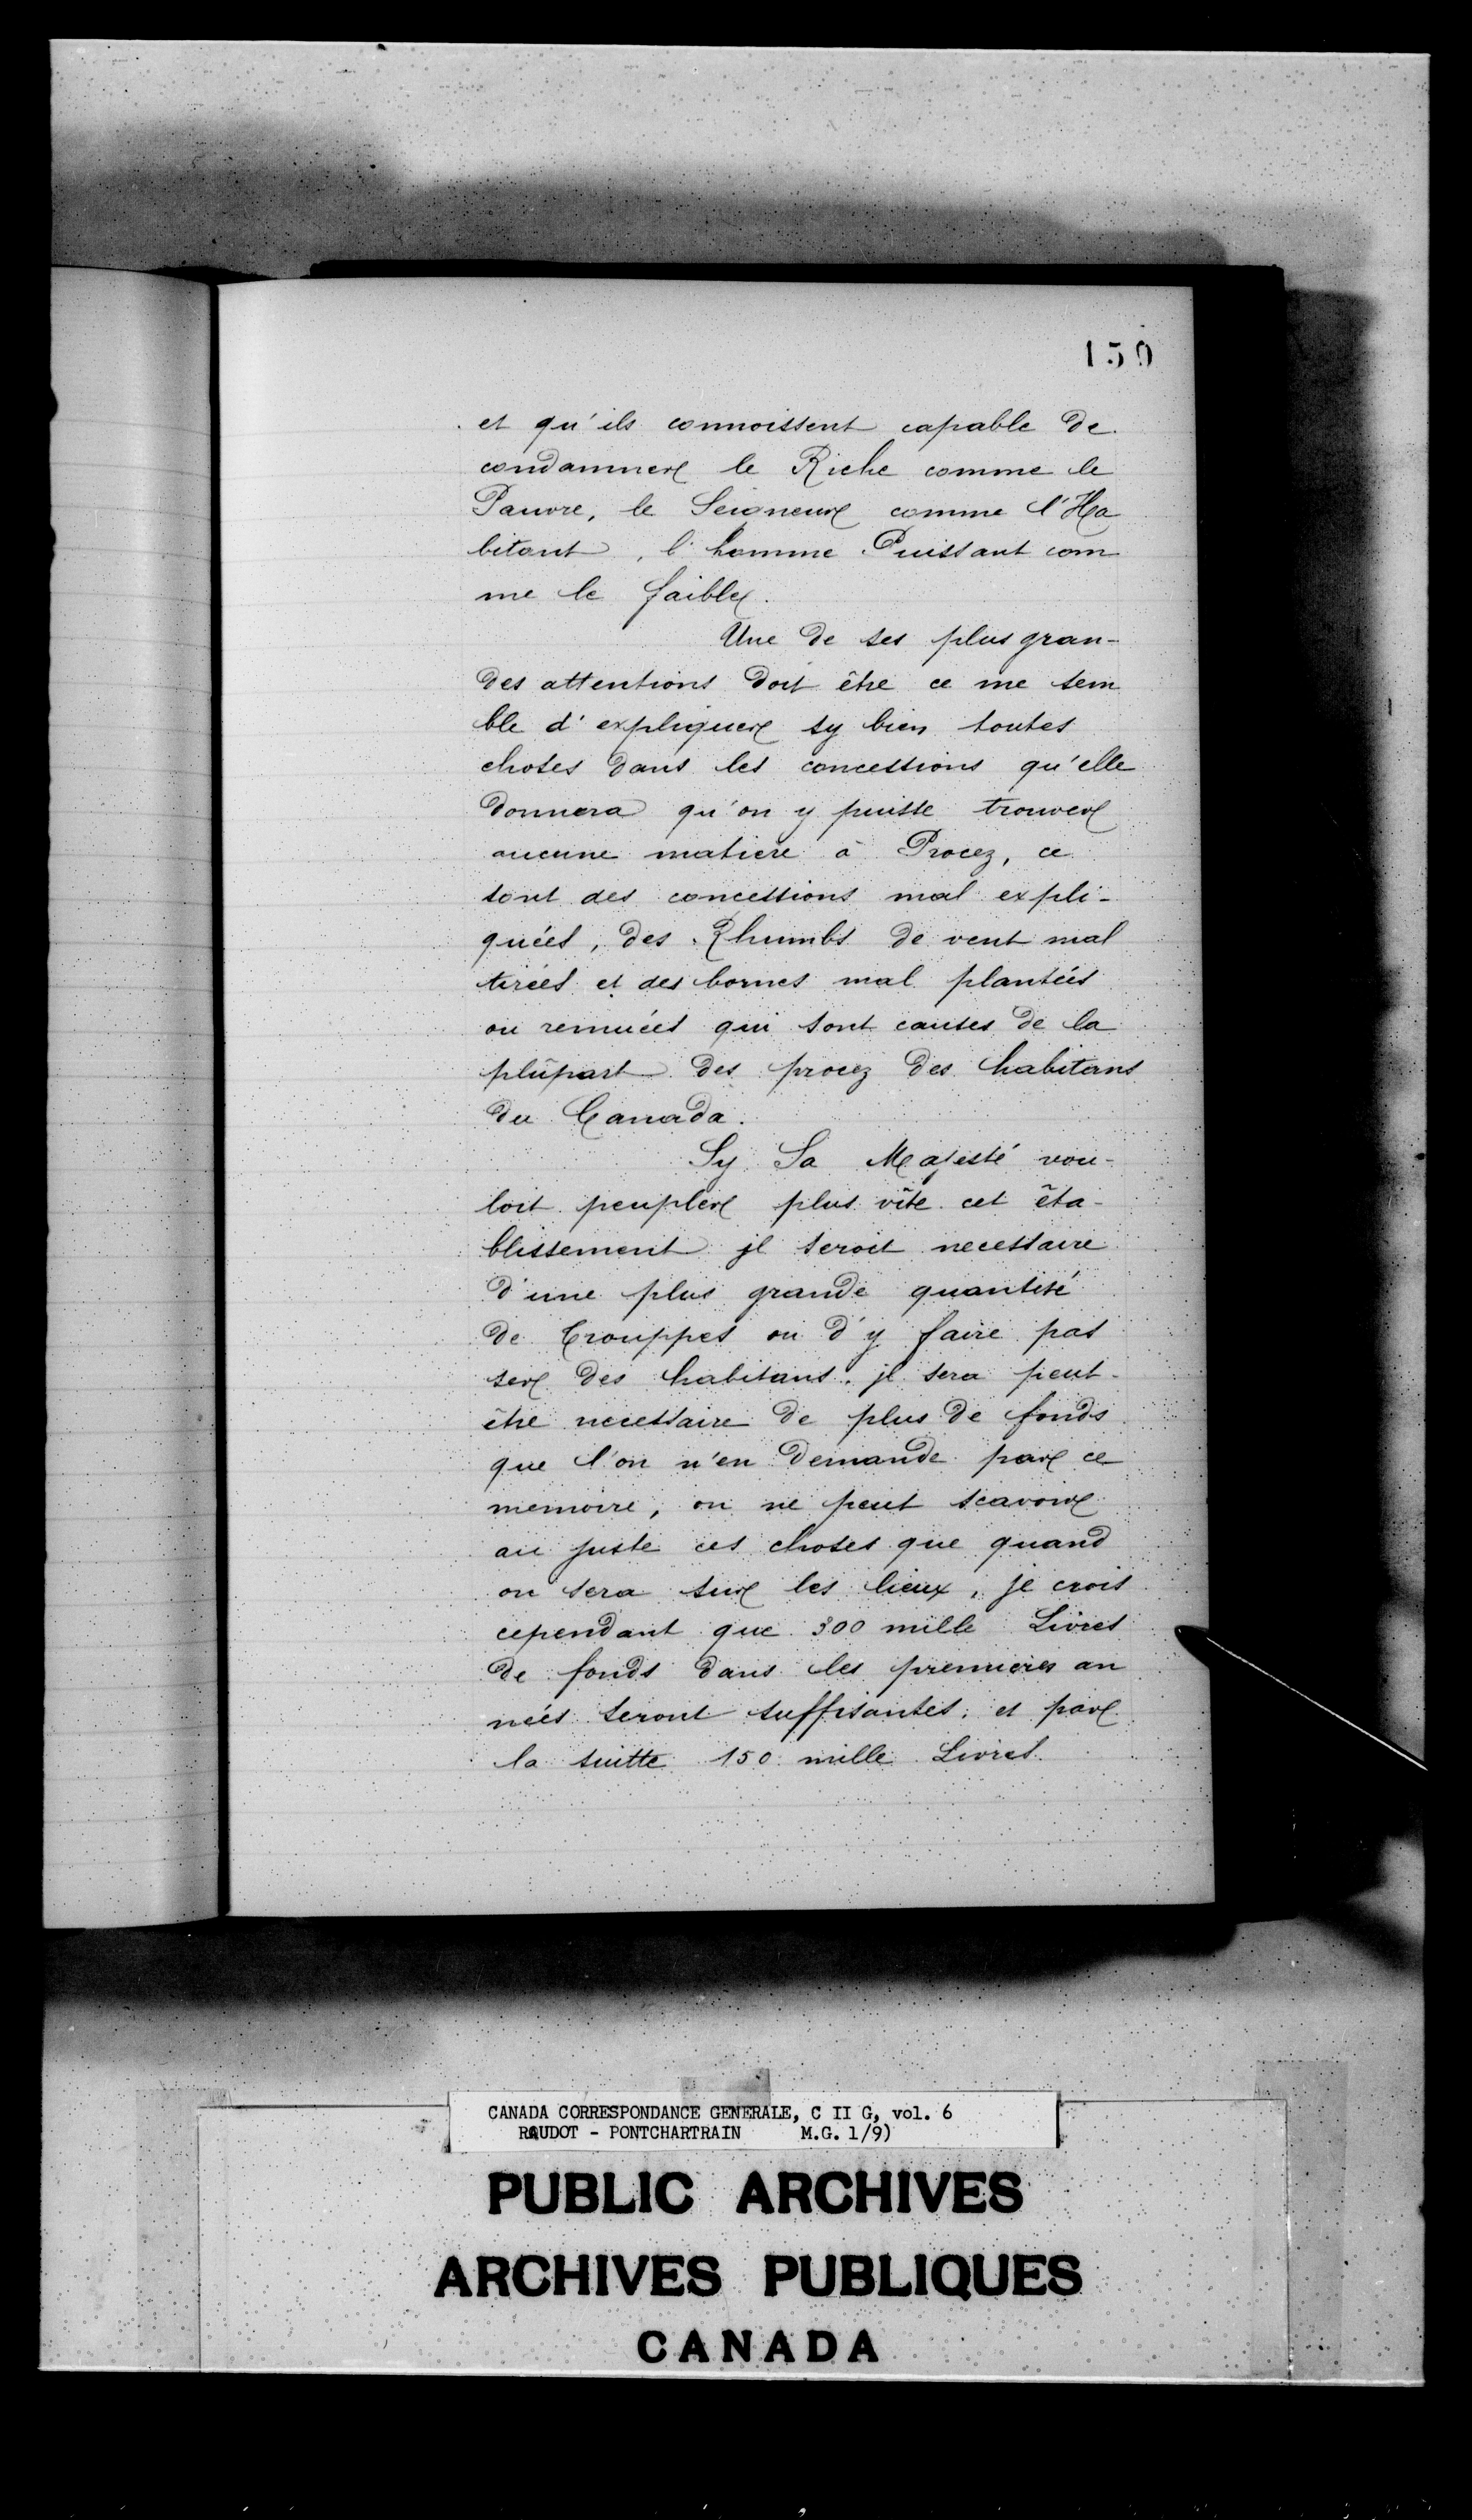 150
et qu'ils connoissent capable de
condamner le Riche comme le
Pauvre, le Seigneur comme l'Ha
bitant, l'homme Puissant com
me le faible.
Une de ses plus gran-
des attentions doit être ce me sem
ble d'expliquer sy bien toutes
choses dans les concessions qu'elle
donnera qu'on y puisse trouver
aucune matiere à Procez, ce
sont des concessions mal expli-
quées, des Rhumbs de vent mal
tirées et des bornes mal plantées
ou remuées qui sont causes de la
plûpart des procez des habitans
du Canada.
Sy Sa Majesté vou-
loit peupler plus vîte cet éta-
blissement jl seroit necessaire
d'une plus grande quantité
de trouppes ou d'y faire pas
ser des habitans. jl sera peut-
être necessaire de plus de fonds
que l'on n'en demande par ce
memoire, on ne peut scavoir
au juste ces choses que quand
on sera sur les lieux, je crois
cependant que 300 mille Livres
de fonds dans les premieres an
nées seront suffisantes, et par
la suitte 150 mille Livres.
CANADA CORRESPONDANCE GENERALE, C II G, vol. 6
RAUDOT - PONTCHARTRAIN M.G. 1/9)
PUBLIC ARCHIVES
ARCHIVES PUBLIQUES
CANADA